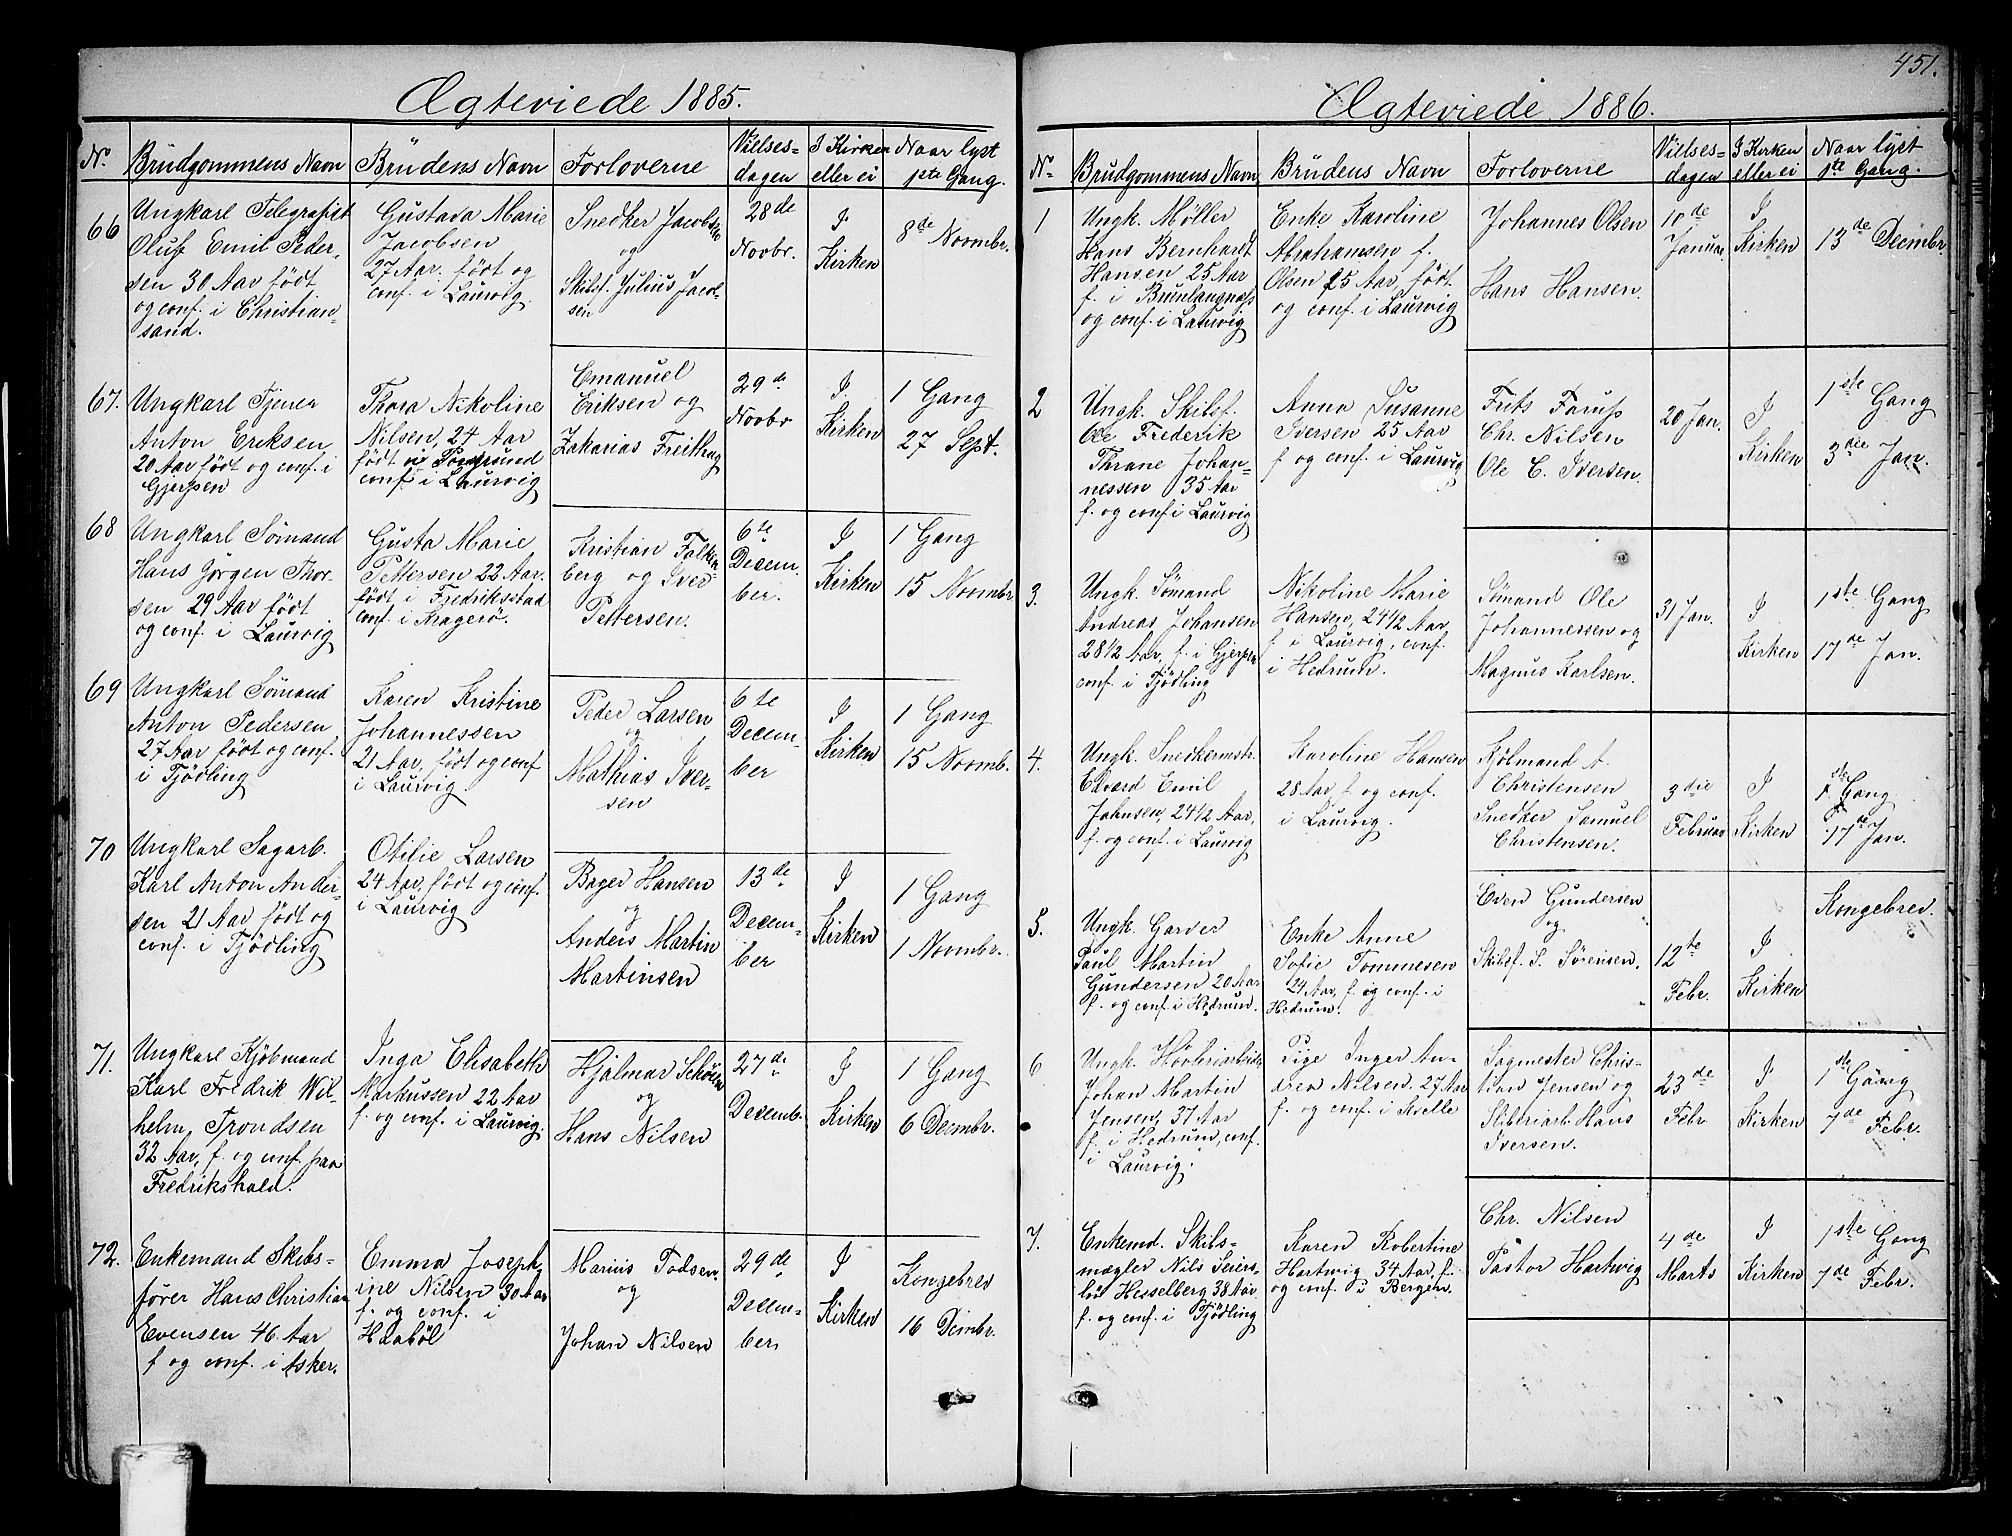 Ægteviede 1885.
N.
Brudgommens Navn
Brudens Navn
Forloverne
Vielses-
dagen
I Kirken
eller ei
Naar lyst
1ste Gang.
66
Ungkarl Telegrafist
Oluf Emil Peder-
sen 30 Aar født
og conf. i Christian-
sand.
Gustava Marie
Jacobsen
27 Aar. født og
conf. i Laurvig.
Snedker Jacobsen
og
Skibsf. Julius Jacob-
sen
28de
Novbr.
I
Kirken
8de Novmbr.
67.
Ungkarl Tjener
Anton Eriksen
20 Aar født og conf. i
Gjerpen
Thora Nikoline
Nilsen, 24 Aar
født i Porsgrund
conf. i Laurvig
Emanuel
Eriksen og
Zakarias Freithag
29de
Novbr
I
Kirken
1 Gang
27 Sept.
68
Ungkarl Sømand
Hans Jörgen Thor-
sen 29 Aar født
og conf. i Laurvig
Gusta Marie
Pettersen 22 Aar.
født i Fredriksstad
conf. i Kragerø.
Kristian Falken
berg og Iver
Pettersen.
6te
Decem-
ber.
I
Kirken
1 Gang
15 Novmbr
69
Ungkarl Sømand
Anton Pedersen
27 Aar født og conf.
i Tjödling
Karen Kristine
Johannessen
21 Aar, født og conf
i Laurvig.
Peder Larsen
og
Mathias Iver-
sen
6te
Decem-
ber
I
Kirken
1 Gang
15 Novmb.
70
Ungkarl Sagarb.
Karl Anton Ander-
sen 21 Aar født og
conf. i Tjödling
Otilie Larsen
24 Aar, født og conf.
i Laurvig
Bager Hansen
og
Anders Martin
Martinsen
13de
Decem-
ber
I
Kirken
1 Gang
1 Novmbr.
71.
Ungkarl Kjöbmand
Karl Fredrik Wil-
helm, Trondsen
32 Aar, f. og conf. paa
Fredrikshald.
Inga Elisabeth
Markussen 22 Aar
f. og conf. i Laurvig.
Hjalmar
og
Hans Nilsen
27de
Decemb.
I
Kirken
1 Gang
6 Decmbr.
72.
Enkemand Skibs-
fører Hans Christian
Evensen 46 Aar
f og conf. i Asker.
Emma Joseph-
ine Nilsen 30 Aar
f. og conf. i
Haaböl
Marius Todsen
og
Johan Nilsen
29de
Decem-
ber,
I
Kirken
Kongebrev
16 Dcmbr.
451.
Ægteviede 1886.
No
Brudgommens Navn
Brudens Navn
Forloverne
Vielses-
dagen
I Kirken
eller ei
Naar lyst
1ste Gang.
1
Ungk. Møller
Hans Bernhardt
Hansen 25 Aar
f. i Brunlangnæss
og conf. i Laurvig
Enke Karoline
Abrahamsen f.
Olsen 25 Aar, født
og conf. i Laurvig
Johannes Olsen
Hans Hansen.
10de
Januar
I
Kirken
13de Decmbr
2
Ungk. Skibsf.
Ole Frederik
Thrane Johan-
nessen 35 Aar
f. og conf i Laurvig
Anna Susanne
Iversen 25 Aar
f og conf. i Laurvig
Frits
Chr. Nilsen
Ole C. Iversen.
20 Jan.
I
Kirken
1ste Gang
3die Jan.
3.
Ungk. Sømand
Andreas Johansen
28 1/2 Aar, f. i Gjerpen
conf. i Tjödling
Nikoline Marie
Hansen, 24 1/2 Aar
f. i Laurvig, conf.
i Hedrum.
Sømand Ole
Johannessen og
Magnus Karlsen.
31 Jan.
I
Kirken
1ste Gang
17de Jan.
4.
Ungk. Snedkermstr.
Edvard Emil
Johnsen, 24 1/2 Aar,
f. og conf. i Laurvig
Karoline Hansen
28 Aar, f. og conf.
i Laurvig.
Kjöbmand A.
Christensen
Snedker Samuel
Christensen.
3die
Februar
I
Kirken
1ste Gang
17de Jan.
5.
Ungk. Garver
Paul Martin
Gundersen 20 Aar
f. og conf. i Hedrum.
Enke Anne
Sofie Tommesen
24 Aar, f. og conf. i
Hedrum.
Even Gundersen
og
Skibsf. S. Sørensen.
12te
Febr.
I
Kirken
Kongebrev.
6
Ungk. Hövleriarbeider
Johan Martin
Jensen, 37 Aar
f. i Hedrum, conf.
i Laurvig.
Pige Inger An-
drea Nilsen. 27 Aar
f. og conf. i Kvelle
Sagmester Chris-
tian Jensen og
Sliberiarb. Hans
Iversen.
23de
Febr
I
Kirken
1ste Gang
7de Febr.
7.
Enkemd. Skibs-
mægler Nils Seiers-
löv Hesselberg 38 Aar
f. og conf. i Tjödling
Karen Robertine
Hartwig 34 Aar, f.
og conf. i Bergen.
Chr. Nilsen
Pastor Hartwig
4de
Marts
I
Kirken
1ste Gang
7de Febr.